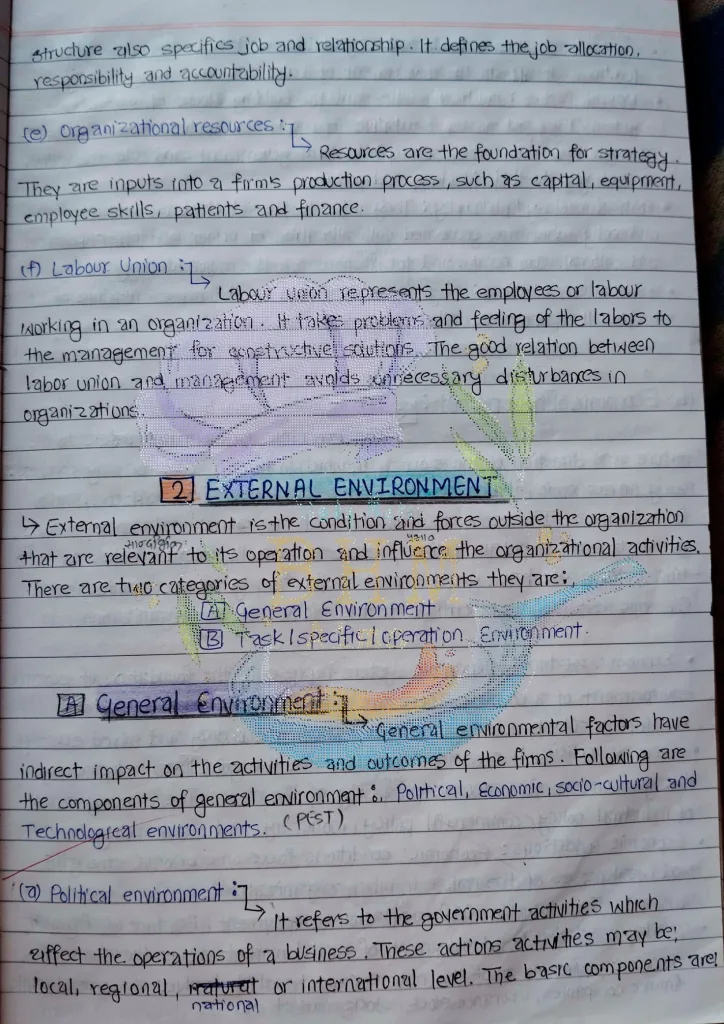 structure also specifics job and relationship. It defines the job allocation,
responsibility and accountability.
(e) Organizational resources :
Resources are the foundation for strategy.
They are inputs into a firm's production process, such as capital, equipment,
employee skills, patients and finance.
(f) Labour Union :
Labour union represents the employees or labour
working in an organization. It takes problems and feeling of the labors to
the management for constructive solutions. The good relation between
labor union and management avoids unnecessary disturbances in
organizations.
2 EXTERNAL ENVIRONMENT
↳ External environment is the condition and forces outside the organization
that are relevant to its operation and influence the organizational activities.
There are two categories of external environments they are:
A General Environment
B Task/specific/operation Environment.
BHM
A General Environment :
General environmental factors have
indirect impact on the activities and outcomes of the firms. Following are
the components of general environment: Political, Economic, socio-cultural and
Technological environments. (PEST)
(a) Political environment :
It refers to the government activities which
affect the operations of a business. These actions activities may be;
local, regional, natural or international level. The basic components are:
national